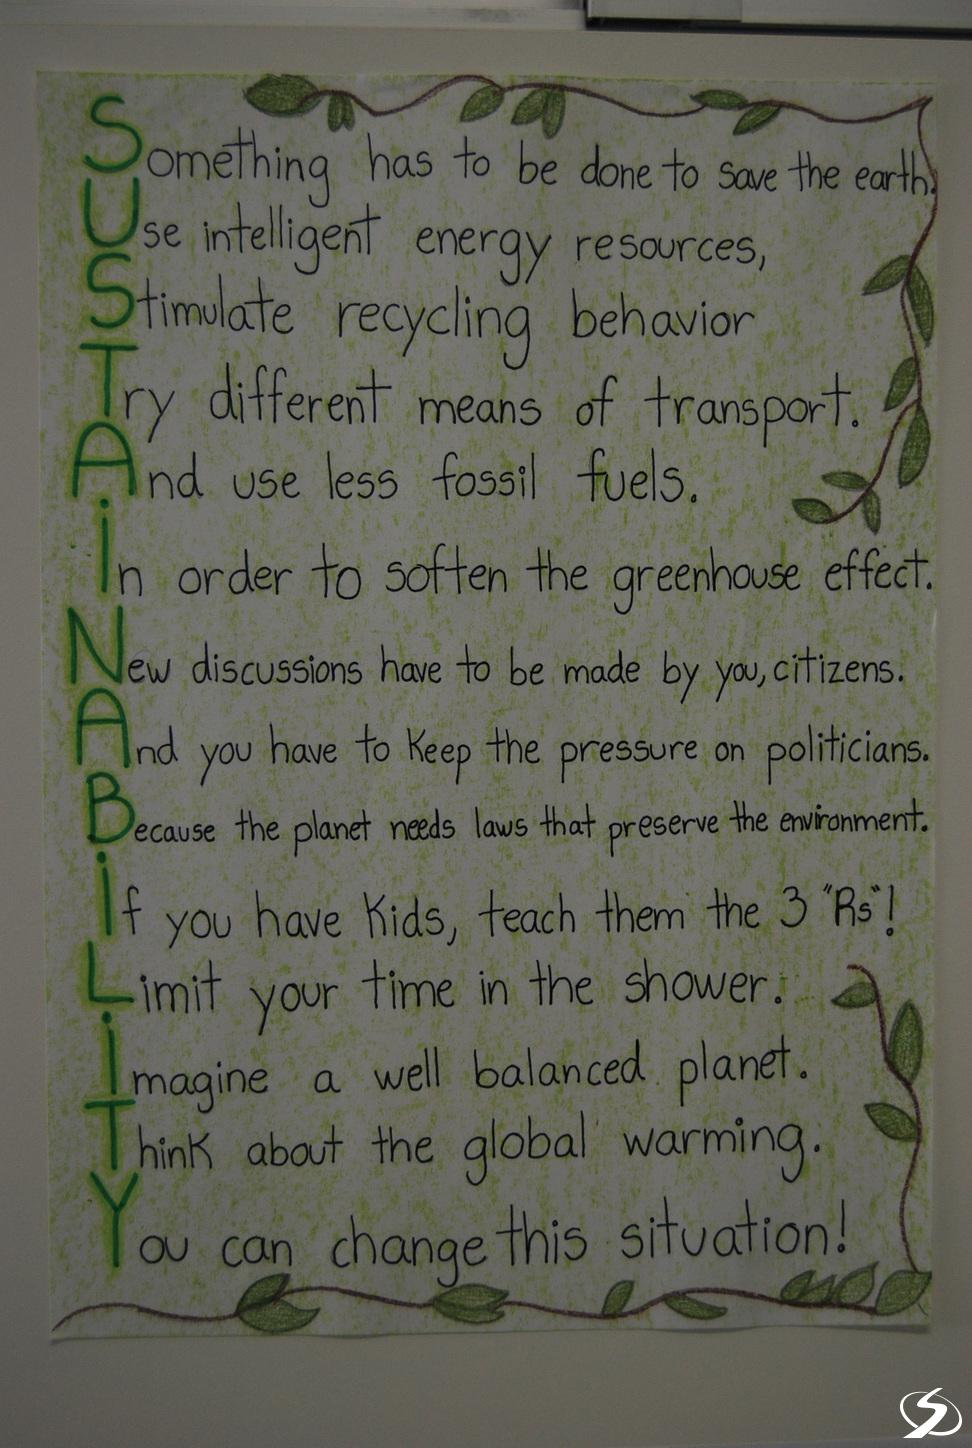 Something has to be done to save the earth.
Use intelligent energy resources,
Stimulate recycling behavior
Try different means of transport.
And use less fossil fuels.
in order to soften the greenhouse effect.
New discussions have to be made by you, citizens.
And you have to keep the pressure on politicians.
Because the planet needs laws that preserve the environment.
if you have kids, teach them the 3 "Rs"!
Limit your time in the shower.
imagine a well balanced planet.
Think about the global warming.
You can change this situation!